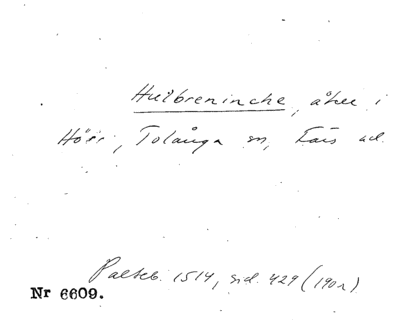 Hulbreninche, åker i
Hörr, Tolånga sn, Färs hd.
Palteb. 1514, sid. 429 (190r)
Nr 6609.